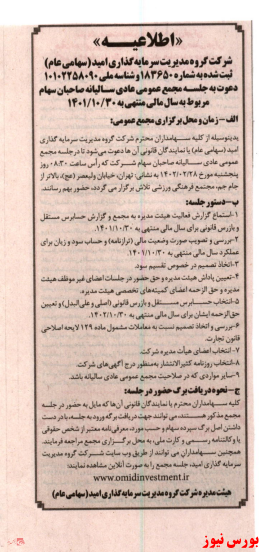 « اطلاعیه »
شرکت گروه مدیریت سرمایه گذاری امید (سهامی عام)
ثبت شده به شماره ۱۸۳۶۵۰ و شناسه ملی ۱۰۱۰۲۲۵۸۰۹۰
دعوت به جلسه مجمع عمومی عادی سالیانه صاحبان سهام
مربوط به سال مالی منتهی به ۱۴۰۱/۱۰/۳۰
الف - زمان و محل برگزاری مجمع عمومی:
بدینوسیله از کلیه سهامداران محترم شرکت گروه مدیریت سرمایه گذاری
امید (سهامی عام) یا نمایندگان قانونی آن ها دعوت می‌شود تا در جلسه مجمع
عمومی عادی سالیانه صاحبان سهام شرکت که رأس ساعت ۰۸:۳۰ روز
پنجشنبه مورخ ۱۴۰۲/۰۲/۲۸ به نشانی: تهران، خیابان ولیعصر (عج)، بالاتر از
جام جم، مجتمع فرهنگی ورزشی تلاش برگزار می گردد، حضور بهم رسانند.
ب-دستور جلسه:
۱-استماع گزارش فعالیت هیئت مدیره به مجمع و گزارش حسابرس مستقل
و بازرس قانونی برای سال مالی منتهی به ۱۴۰۱/۱۰/۳۰.
۲-بررسی و تصویب صورت وضعیت مالی (ترازنامه) و حساب سود و زیان برای
عملکرد سال مالی منتهی به ۱۴۰۱/۱۰/۳۰
۳-اتخاذ تصمیم در خصوص تقسیم سود.
۴-تعیین پاداش هیئت مدیره و حق حضور در جلسات اعضای غیر موظف هیئت
مدیره و حق الزحمه اعضای کمیته‌های تخصصی هیئت مدیره.
۵-انتخاب حسابرس مستقل و بازرس قانونی (اصلی و علی البدل) و تعیین
حق الزحمه ایشان برای سال مالی منتهی به ۱۴۰۲/۱۰/۳۰.
۶-بررسی و اتخاذ تصمیم نسبت به معاملات مشمول ماده ۱۲۹ لایحه اصلاحی
قانون تجارت.
۷-انتخاب اعضای هیأت مدیره شرکت.
۸-انتخاب روزنامه کثیرالانتشار به‌منظور درج آگهی‌های شرکت.
۹-سایر مواردی که در صلاحیت مجمع عمومی عادی سالیانه باشد.
ج-نحوه دریافت برگ حضور در جلسه:
کلیه سهامداران محترم یا نمایندگان قانونی آن‌ها که مایل به حضور در جلسه
مجمع مذکور هستند، می توانند جهت دریافت برگه ورود به جلسه، با در دست
داشتن اصل برگ سپرده سهام و حسب مورد، معرفی‌نامه معتبر از شخص حقوقی
یا وکالتنامه رسمی و کارت ملی، به محل برگزاری مجمع مراجعه فرمایند.
همچنین سهامداران می توانند از طریق وب سایت شرکت گروه مدیریت
سرمایه گذاری امید، جلسه مجمع را به صورت آنلاین مشاهده نمایند:
www.omidinvestment.ir
هیئت مدیره شرکت گروه مدیریت سرمایه گذاری امید (سهامی عام)
بورس نیوز